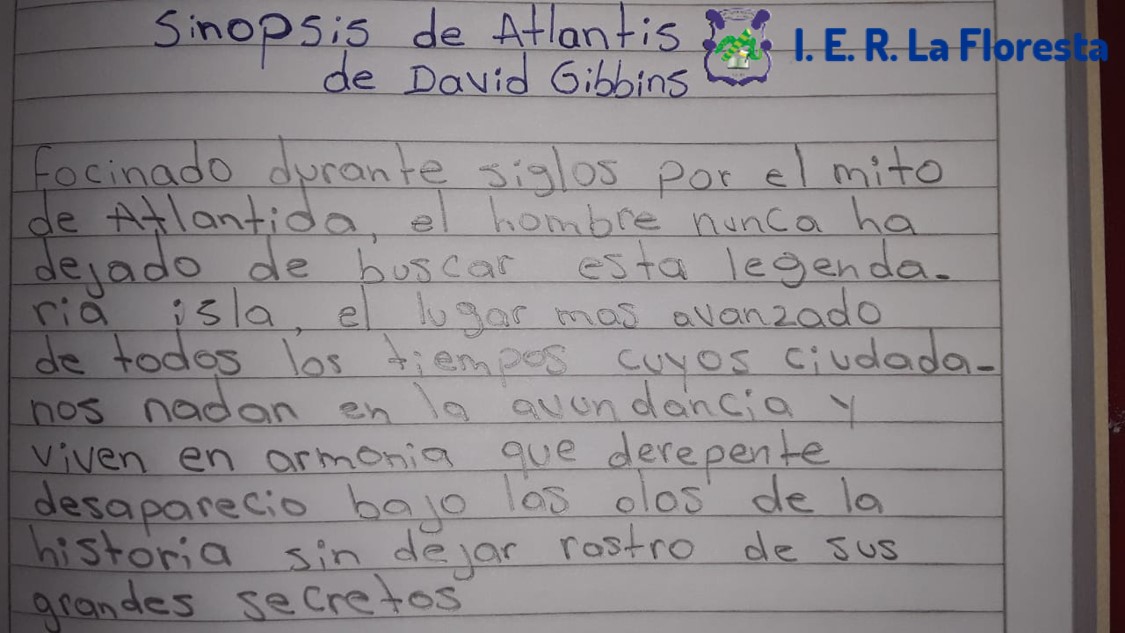 Sinopsis de Atlantis
de David Gibbins
I. E. R. La Floresta
Focinado durante siglos por el mito
de Atlantida, el hombre nunca ha
dejado de buscar esta legenda-
ria isla, el lugar mas avanzado
de todos los tiempos cuyos ciudada-
nos nadan en la avundancia y
viven en armonia que derepente
desaparecio bajo las olas de la
historia sin dejar rastro de sus
grandes secretos